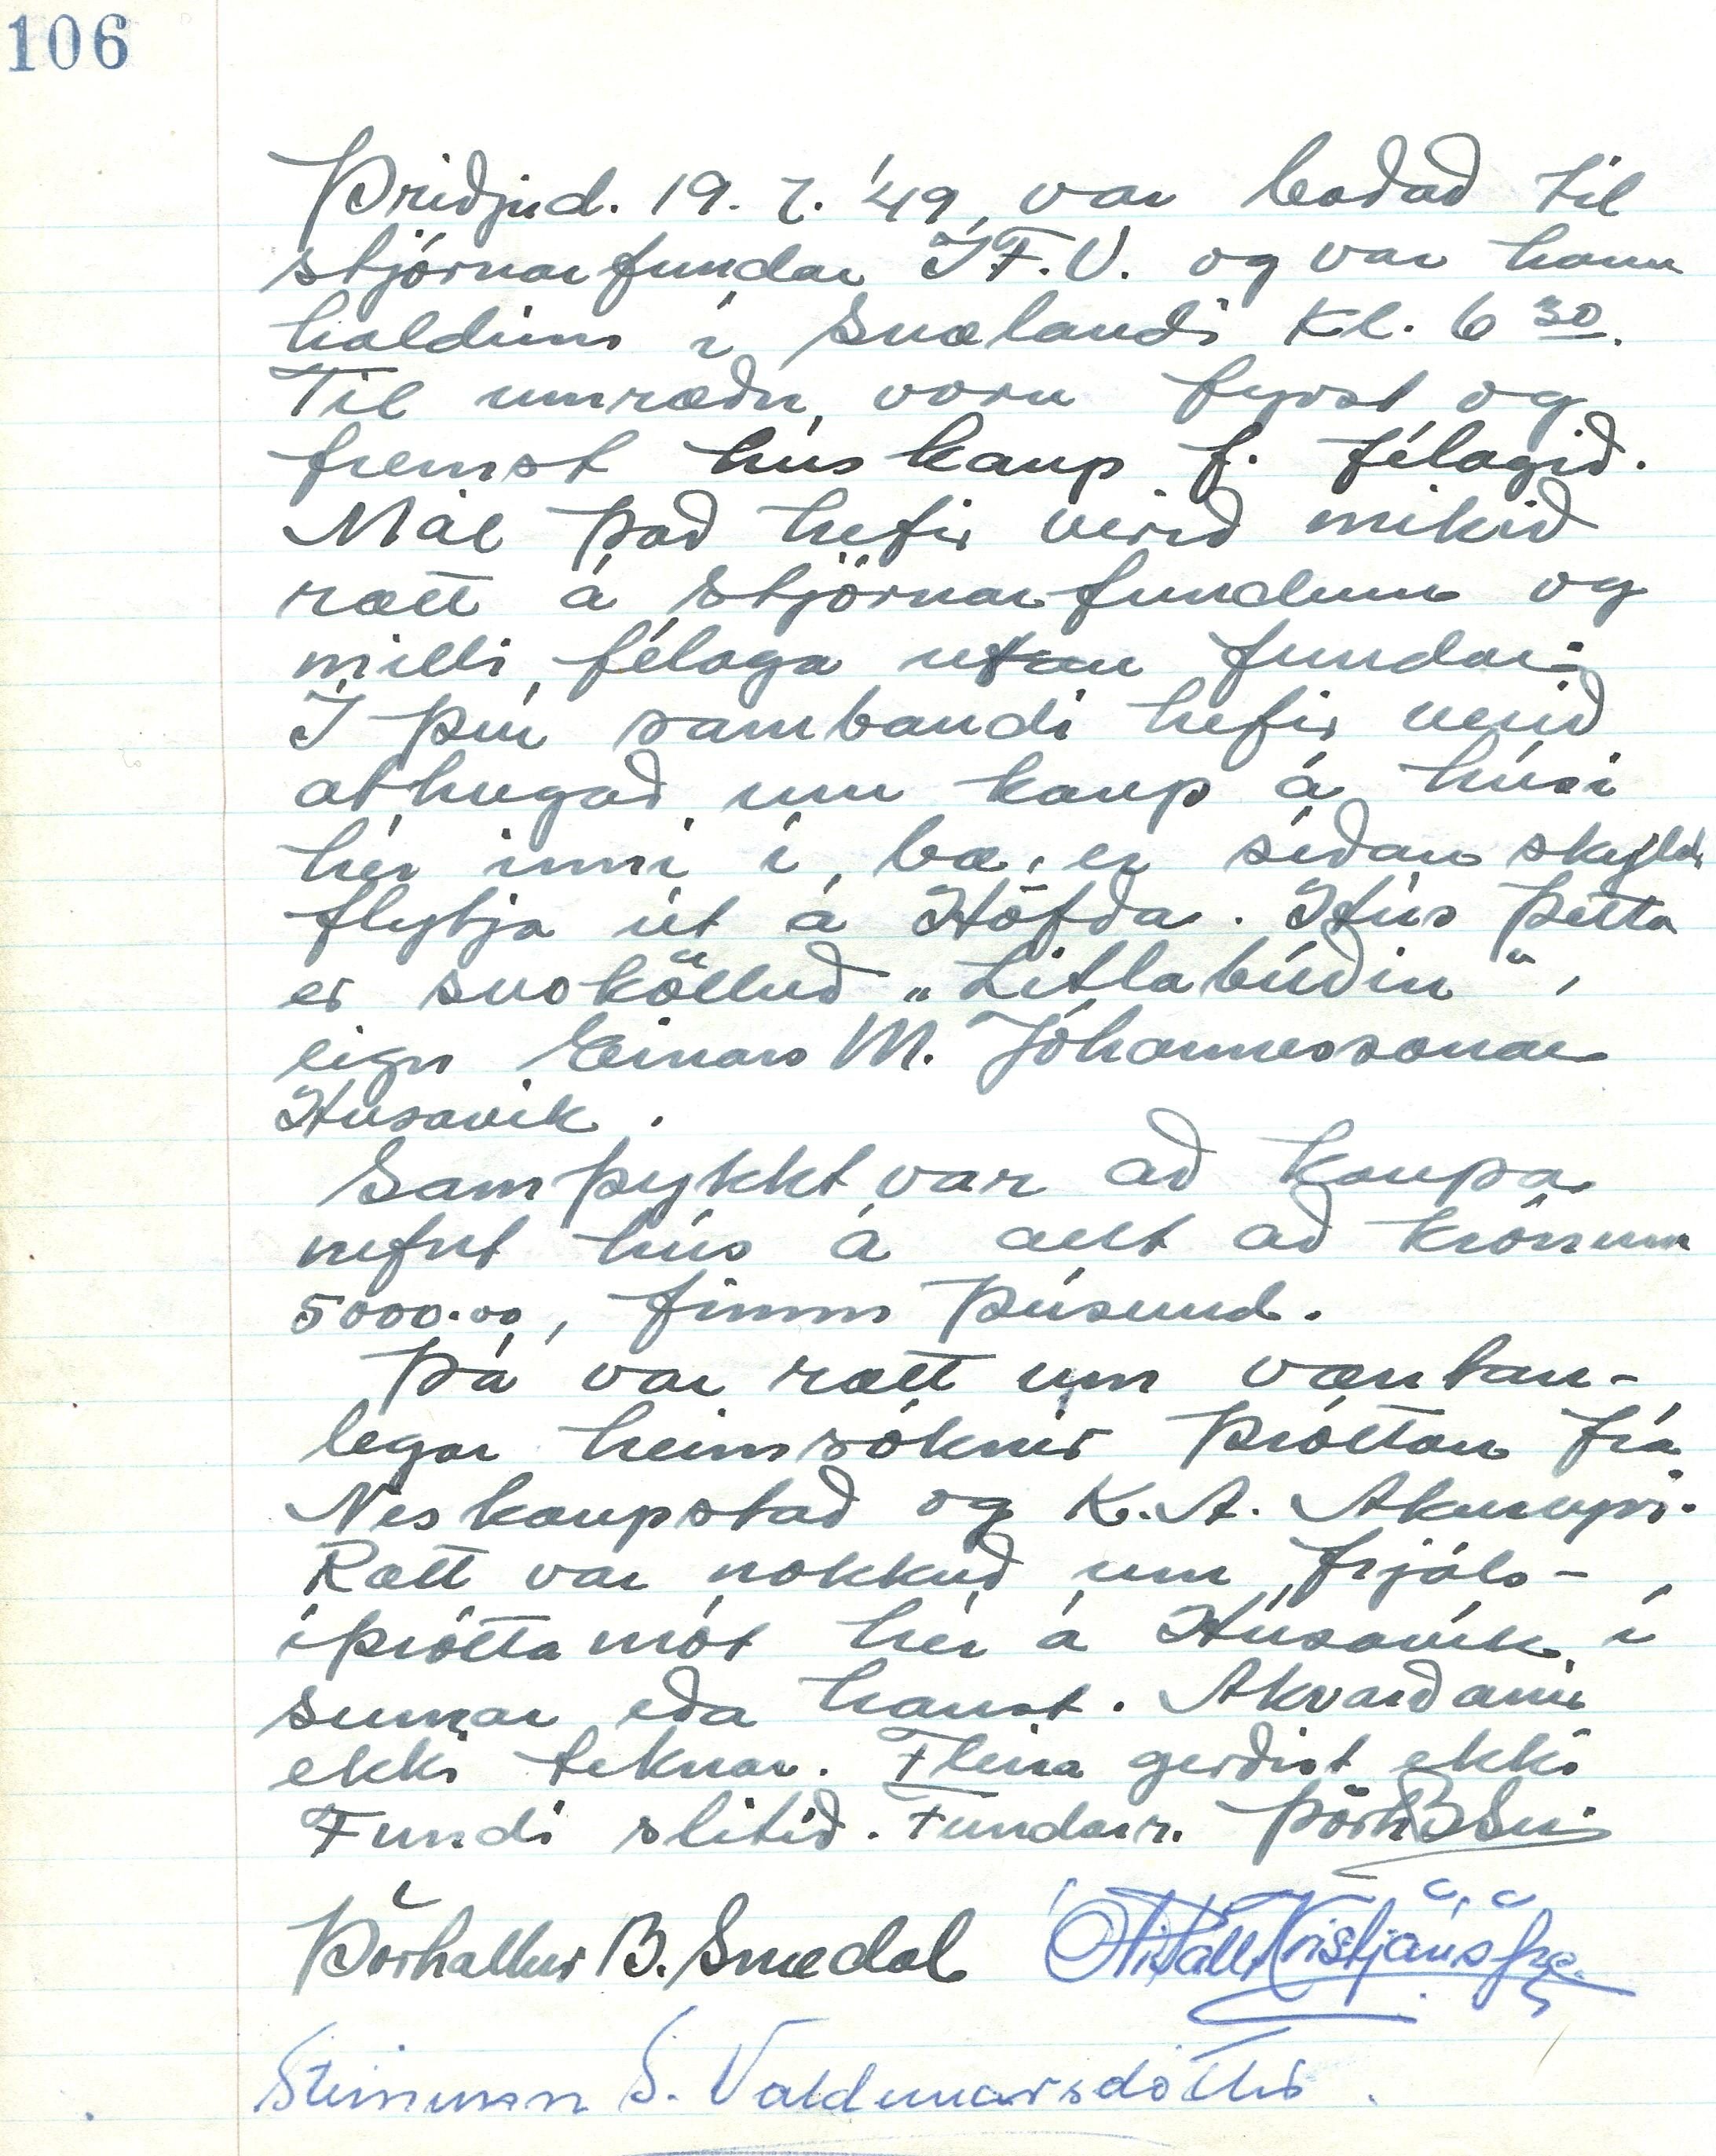 106
Þriðjud. 19. 7. '49, var boðað til
stjórnarfundar Í.F.V. og var hann
haldinn í Snælandi kl. 6 30.
Til umræðu voru fyrst og
fremst húskaup f. félagið.
Mál það hefir verið mikið
rætt á stjórnarfundum og
milli félaga utan fundar.
Í því sambandi hefir verið
athugað um kaup á húsi
hér inni í bæ, er síðan skyldi
flytja út á Höfða. Hús þetta
er svokölluð „Litlabúðin“,
eign Einars M. Jóhannessonar
Húsavík.
Samþykkt var að kaupa
nefnt hús á allt að krónum
5000.00, fimm þúsund.
Þá var rætt um væntan-
legar heimsóknir Þróttar frá
Neskaupstað og K.A. Akureyri.
Rætt var nokkuð um frjáls-
íþróttamót hér á Húsavík í
sumar eða haust. Ákvarðanir
ekki teknar. Fleira gerðist ekki
Fundi slitið. Fundarr. ÞórhBSn
Þórhallur B. Snædal Páll Kristjánsson
Steinunn S. Valdemarsdóttir